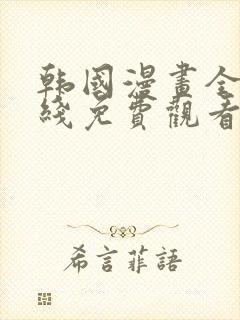 韩國漫畫全
綫免費觀看
希言菲語